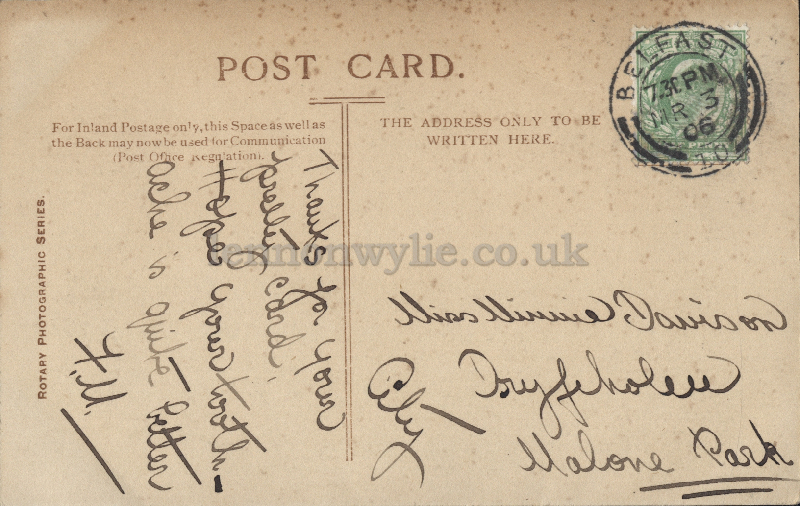 POST CARD.
For Inland Postage only, this Space as well as
the Back may now be used for Communication
(Post Office Regulation).
THE ADDRESS ONLY TO BE
WRITTEN HERE.
ROTARY PHOTOGRAPHIC SERIES.
BELFAST
7.30 PM
MR 3
06
10
Thanks for your
pretty card.
Hope your tooth-
ache is quite better
F.M.
Miss Minnie Davison
Malone Park
City
lennonwylie.co.uk